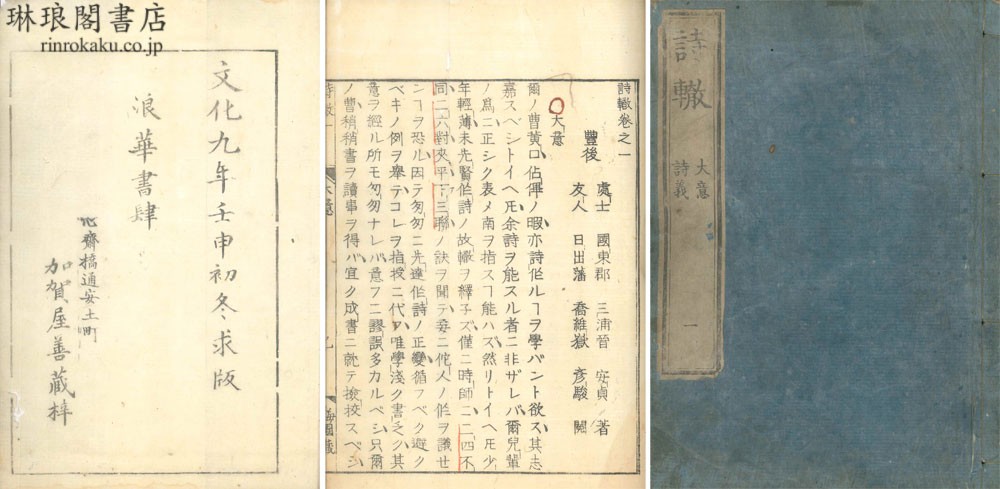 琳琅閣書店
rinrokaku.co.jp
文化九年壬申初冬求版
浪華書肆
心齋橋通安土町
加賀屋善藏梓
詩轍卷之一
豐後 處士 國東郡 三浦晋 安貞 著
友人 日出藩 喬維嶽 彦駿 閲
大意
爾ノ曹黄口佔畢ノ暇亦詩作ルヿヲ學バント欲ス其志
嘉スベシトイヘ𪜈余詩ヲ能スル者ニ非ザレバ爾兒輩
ノ爲ニ正シク表メ南ヲ指スヿ能ハズ然リトイヘ𪜈少
年輕薄未先賢作詩ノ故轍ヲ繹子ズ僅ニ時師ニ二四不
同二六對夾平下三聯ノ訣ヲ聞テ妄ニ佗人ノ作ヲ議セ
ンヿヲ恐ル因テ匆匆ニ先達作詩ノ正變循フベク避ク
ベキノ例ヲ擧テコレヲ指授ニ代フ唯學淺ク書乏ク其
意ヲ經ル所モ匆匆ナレバ意フニ謬誤多カルベシ只爾
ノ曹稍稍書ヲ讀事ヲ得バ宜ク成書ニ就テ撿挍スベシ
詩轍一 大意
詩轍
大意
詩義
一